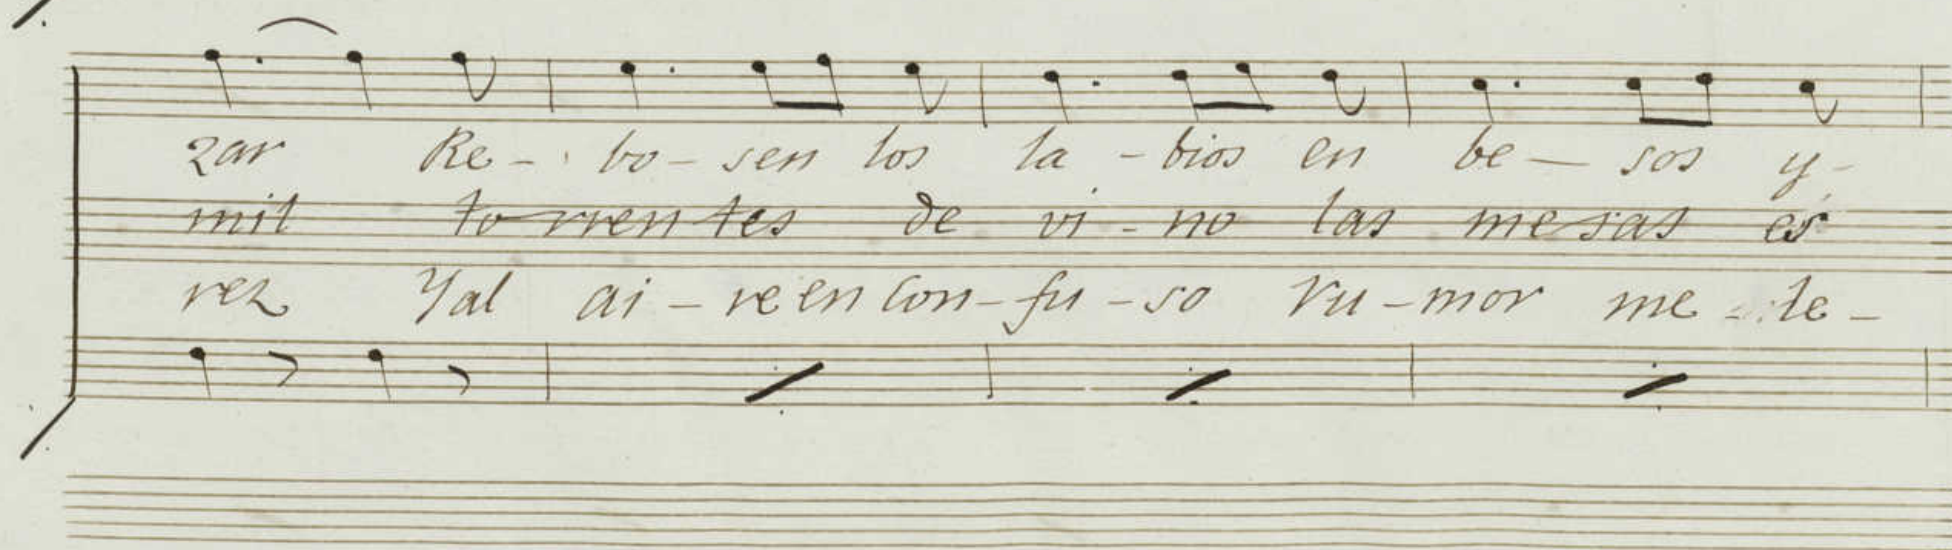 zar Re- bo-sen los la-bios en be-sos y-
mil torrentes de vi-no las mesas es
rez Yal ai-re en Con-fu-so ru-mor me-le-